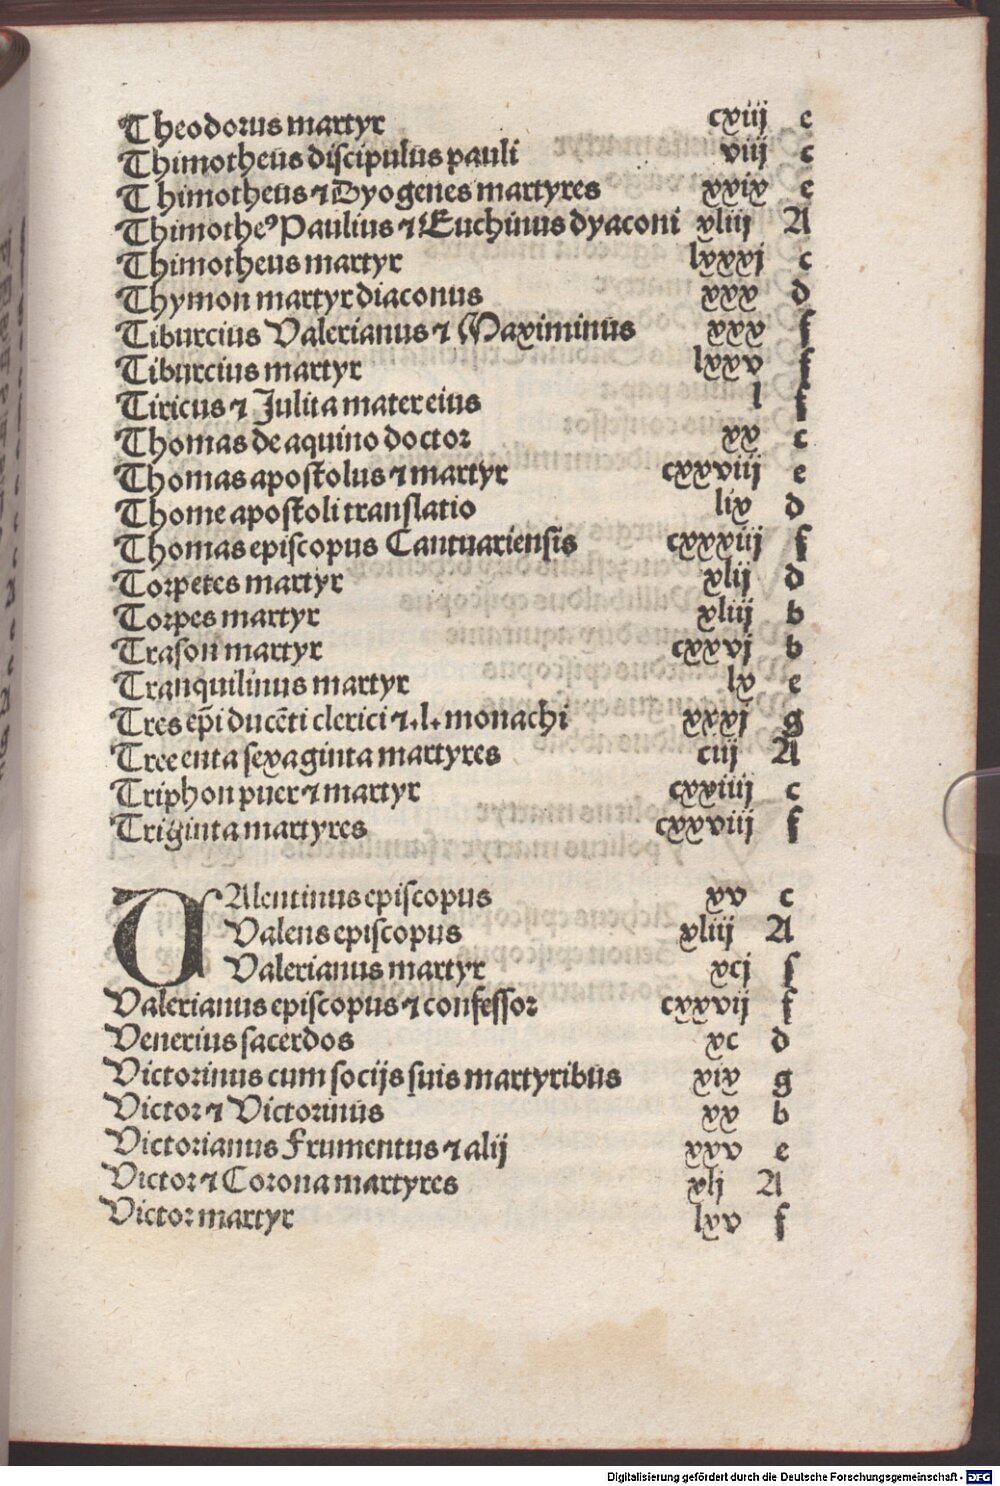 Theodorus martyr cxiij e
Thimotheus discipulus pauli viij c
Thimotheus ⁊ Dyogenes martyres xxix e
Thimotheꝰ Paulius ⁊ Euchinus dyaconi xliij A
Thimotheus martyr lxxxj c
Thymon martyr diaconus xxx d
Tiburcius Valerianus ⁊ Maximinus xxx f
Tiburcius martyr lxxv f
Tiricus ⁊ Julita mater eius l f
Thomas de aquino doctor xx c
Thomas apostolus ⁊ martyr cxxviij e
Thome apostoli translatio lix d
Thomas episcopus Cantuariensis cxxxiij f
Torpetes martyr xlij d
Torpes martyr xliij b
Trason martyr cxxvj b
Tranquilinus martyr lx e
Tres ep̄i ducēti clerici ⁊.l. monachi xxxj g
Tree enta sexaginta martyres ciij A
Triphon puer ⁊ martyr cxxiiij c
Triginta martyres cxxviij f
VAlentinus episcopus xv c
Valens episcopus xliij A
Valerianus martyr xcj f
Valerianus episcopus ⁊ confessor cxxvij f
Venerius sacerdos xc d
Victorinus cum socijs suis martyribus xix g
Victor ⁊ Victorinus xx b
Victorianus Frumentus ⁊ alij xxv e
Victor ⁊ Corona martyres xlj A
Victor martyr lxv f
Digitalisierung gefördert durch die Deutsche Forschungsgemeinschaft - DFG